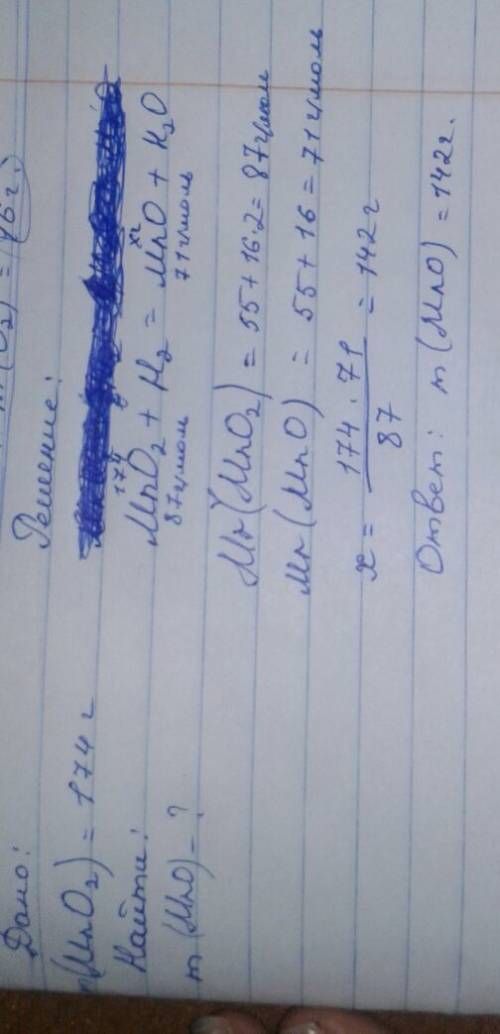 Дано:
m(MnO₂) = 174 г
Найти:
m(MnO) - ?
Решение:
174 xг
MnO₂ + H₂ = MnO + H₂O
87г/моль 71г/моль
Mr(MnO₂) = 55+16·2=87г/моль
Mr(MnO) = 55+16=71г/моль
x = 174·71 / 87 = 142г
Ответ: m(MnO)=142г.